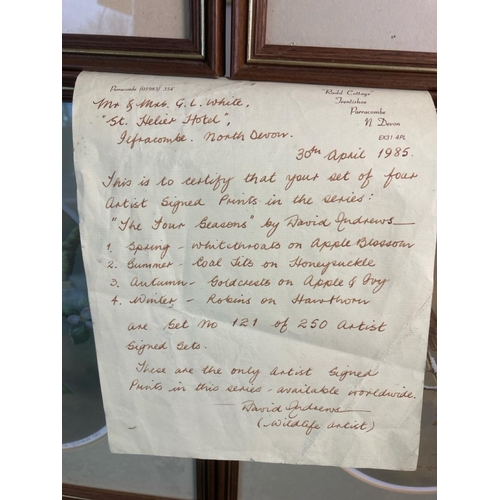 Parracombe (05983) 354
"Rudd Cottage"
Trentishoe
Parracombe
N. Devon
EX31 4PL
Mr & Mrs. G. L. White,
"St. Helier Hotel",
Ilfracombe. North Devon.
30th April 1985.
This is to certify that your set of four
Artist Signed Prints in the series:
"The Four Seasons" by David Andrews
1. Spring - Whitethroats on Apple Blossom
2. Summer - Coal Tits on Honeysuckle
3. Autumn - Goldcrests on Apple & Ivy
4. Winter - Robins on Hawthorn
are Set No 121 of 250 Artist
Signed Sets.
These are the only Artist Signed
Prints in this series - available worldwide.
David Andrews
(Wildlife Artist)